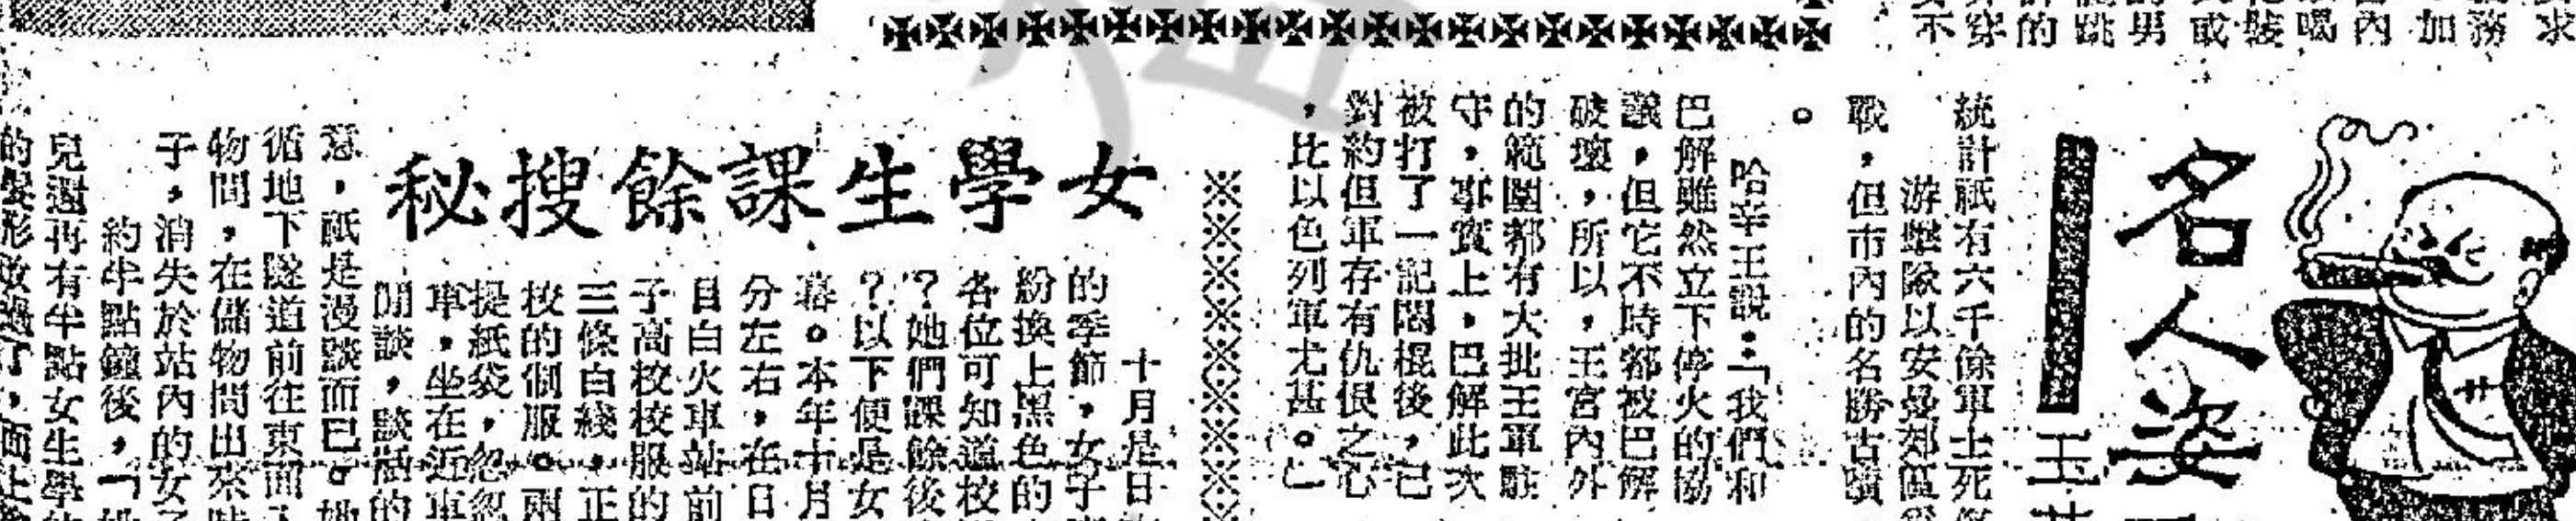 求
務
加
內
喝
裝
或
男
跳
的
穿
不
名人姿
王
統計祇有六千餘軍士死
游擊隊以安曼郊區
戰，但市內的名勝古蹟
。
哈辛王說：「我們和
巴解雖然立下停火的協
議，但它不時都被巴解
破壞，所以，王宮內外
的範圍都有大批王軍駐
守，事實上，巴解此次
被打了一記悶棍後，已
對約但軍存有仇恨之心
，比以色列軍尤甚。」
女學生課餘搜秘
十月是日
的季節，女子
紛換上黑色的
各位可知道校
？她們課餘後
？以下便是女
幕。本年十月
分左右，在日
目白火車站前
子高校校服的
三條白綫，正
校的制服。兩
提紙袋，忽忽
車，坐在近車
閒談，談話的
意，祇是漫談而已。她
循地下隧道前往東面
物間，在儲物間出來時
子，消失於站內的女子
約半點鐘後，「她
兒還再有半點女生學
的髮形改過了，面上